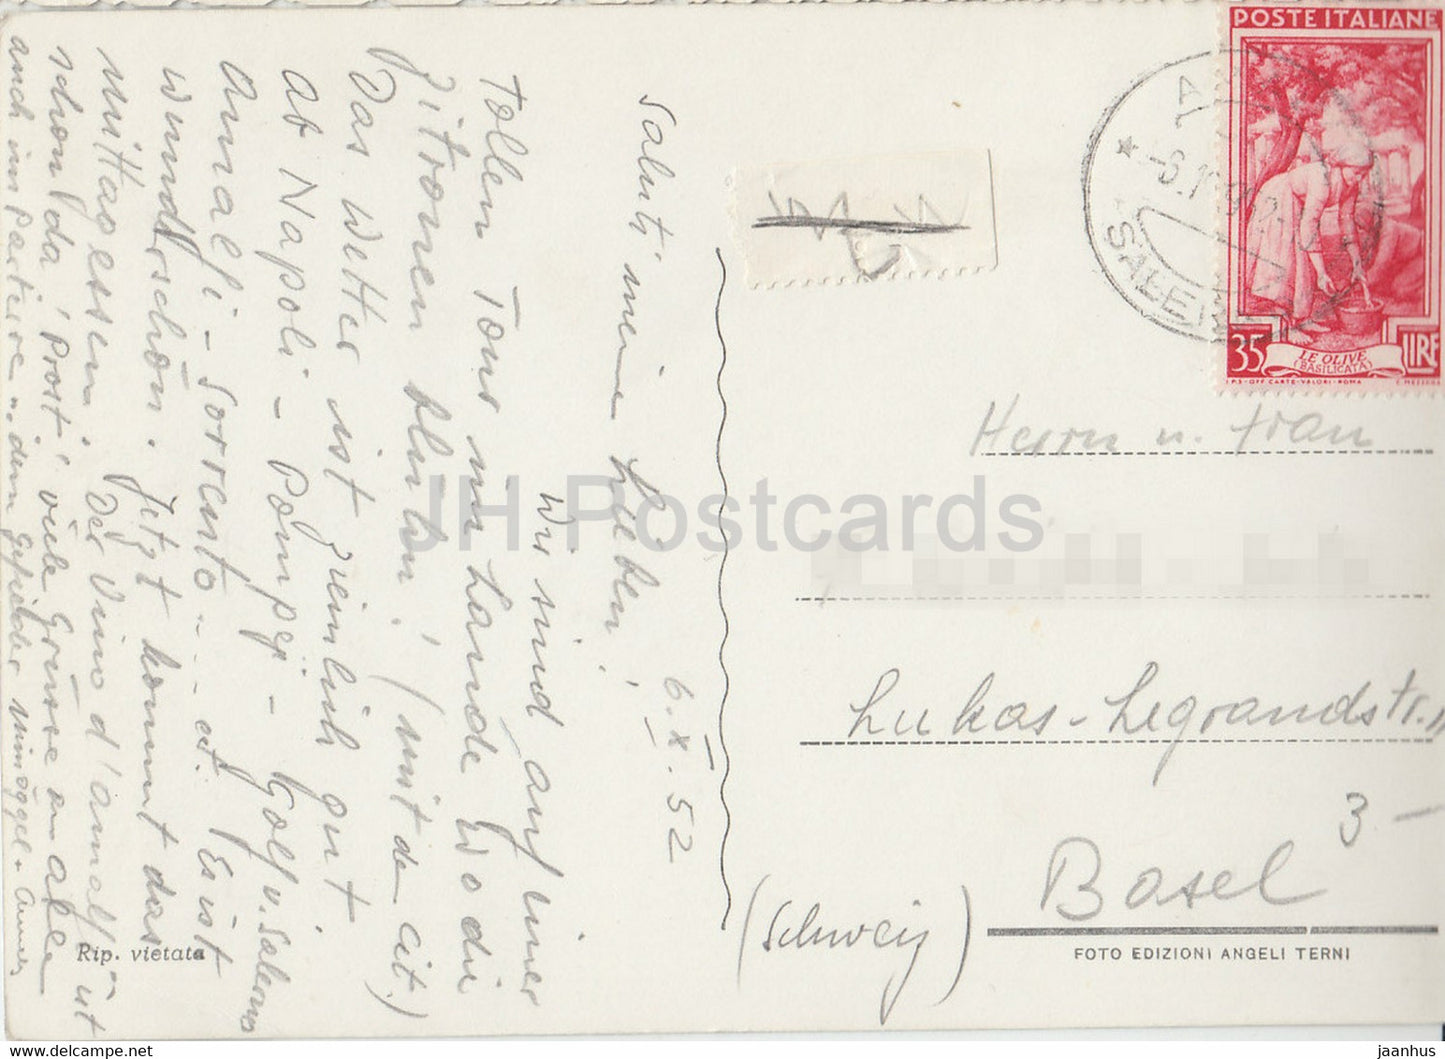 Saluti meine Lieben!
6.X.52
Wir sind auf einer
tollen Tour im Lande wo die
Zitronen blühn! (mit de Cit.)
Das Wetter ist ziemlich gut
ab Napoli - Pompeji - Golf v. Salerno
Amalfi - Sorrento - - - ect. Es ist
wunderschön. Jetzt kommt das
Mittagessen! Der Vino d'amalfi ist
schon da! Prost! viele Grüsse an alle
auch im Parterre u. dem
Rip. vietata
POSTE ITALIANE
35 LIRE
LE OLIVE
(BASILICATA)
I.P.S-OFF. CARTE-VALORI-ROMA
SALERNO
Herrn u. Frau
Lukas-Legrandstr. 11
3 -
Basel
(Schweiz)
FOTO EDIZIONI ANGELI TERNI
JH Postcards
www.delcampe.net
jaanhus